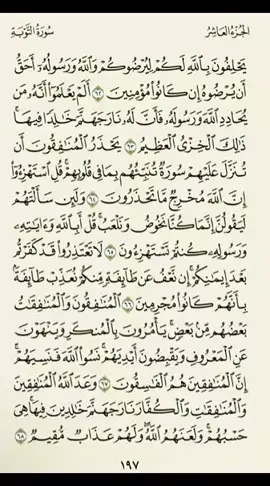 الجزء العاشر
سورة التوبة
يَحْلِفُونَ بِاللَّهِ لَكُمْ لِيُرْضُوكُمْ وَاللَّهُ وَرَسُولُهُ أَحَقُّ
أَن يُرْضُوهُ إِن كَانُوا مُؤْمِنِينَ ٦٢ أَلَمْ يَعْلَمُوا أَنَّهُ مَن
يُحَادِدِ اللَّهَ وَرَسُولَهُ فَأَنَّ لَهُ نَارَ جَهَنَّمَ خَالِدًا فِيهَا
ذَٰلِكَ الْخِزْيُ الْعَظِيمُ ٦٣ يَحْذَرُ الْمُنَافِقُونَ أَن
تُنَزَّلَ عَلَيْهِمْ سُورَةٌ تُنَبِّئُهُم بِمَا فِي قُلُوبِهِمْ قُلِ اسْتَهْزِئُوا
إِنَّ اللَّهَ مُخْرِجٌ مَّا تَحْذَرُونَ ٦٤ وَلَئِن سَأَلْتَهُمْ
لَيَقُولُنَّ إِنَّمَا كُنَّا نَخُوضُ وَنَلْعَبُ قُلْ أَبِاللَّهِ وَآيَاتِهِ
وَرَسُولِهِ كُنتُمْ تَسْتَهْزِئُونَ ٦٥ لَا تَعْتَذِرُوا قَدْ كَفَرْتُم
بَعْدَ إِيمَانِكُمْ إِن نَّعْفُ عَن طَائِفَةٍ مِّنكُمْ نُعَذِّبْ طَائِفَةً
بِأَنَّهُمْ كَانُوا مُجْرِمِينَ ٦٦ الْمُنَافِقُونَ وَالْمُنَافِقَاتُ
بَعْضُهُم مِّن بَعْضٍ يَأْمُرُونَ بِالْمُنكَرِ وَيَنْهَوْنَ
عَنِ الْمَعْرُوفِ وَيَقْبِضُونَ أَيْدِيَهُمْ نَسُوا اللَّهَ فَنَسِيَهُمْ
إِنَّ الْمُنَافِقِينَ هُمُ الْفَاسِقُونَ ٦٧ وَعَدَ اللَّهُ الْمُنَافِقِينَ
وَالْمُنَافِقَاتِ وَالْكُفَّارَ نَارَ جَهَنَّمَ خَالِدِينَ فِيهَا هِيَ
حَسْبُهُمْ وَلَعَنَهُمُ اللَّهُ وَلَهُمْ عَذَابٌ مُّقِيمٌ ٦٨
١٩٧